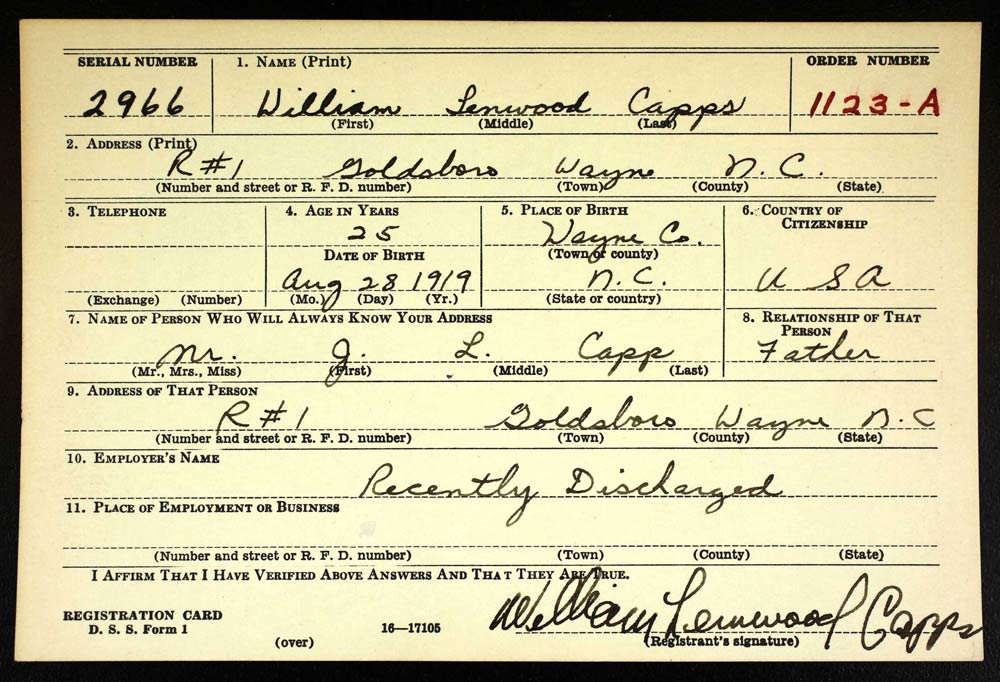 SERIAL NUMBER 1. NAME (Print) ORDER NUMBER
2966 William Lenwood Capps 1123-A
(First) (Middle) (Last)
2. ADDRESS (Print)
R#1 Goldsboro Wayne N.C.
(Number and street or R. F. D. number) (Town) (County) (State)
3. TELEPHONE 4. AGE IN YEARS 5. PLACE OF BIRTH 6. COUNTRY OF CITIZENSHIP
25 Wayne Co.
DATE OF BIRTH (Town or county)
Aug 28 1919 N.C. U S A
(Exchange) (Number) (Mo.) (Day) (Yr.) (State or country)
7. NAME OF PERSON WHO WILL ALWAYS KNOW YOUR ADDRESS 8. RELATIONSHIP OF THAT PERSON
Mr. J. L. Capp Father
(Mr., Mrs., Miss) (First) (Middle) (Last)
9. ADDRESS OF THAT PERSON
R#1 Goldsboro Wayne N.C
(Number and street or R. F. D. number) (Town) (County) (State)
10. EMPLOYER'S NAME
Recently Discharged
11. PLACE OF EMPLOYMENT OR BUSINESS
(Number and street or R. F. D. number) (Town) (County) (State)
I AFFIRM THAT I HAVE VERIFIED ABOVE ANSWERS AND THAT THEY ARE TRUE.
William Lennwood Capps
REGISTRATION CARD
D. S. S. Form 1 16—17105
(over) (Registrant's signature)